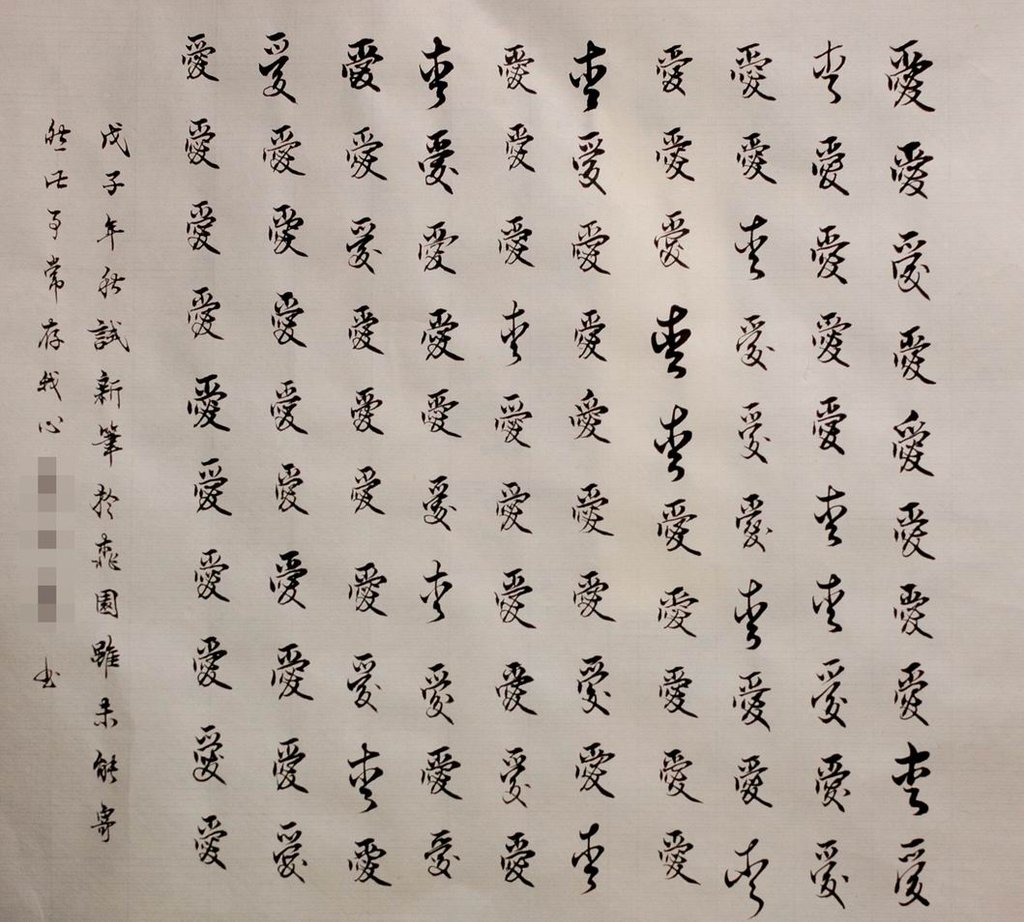 愛愛愛愛愛愛愛愛愛愛
愛愛愛愛愛愛愛愛愛愛
愛愛愛愛愛愛愛愛愛愛
愛愛愛愛愛愛愛愛愛愛
愛愛愛愛愛愛愛愛愛愛
愛愛愛愛愛愛愛愛愛愛
愛愛愛愛愛愛愛愛愛愛
愛愛愛愛愛愛愛愛愛愛
愛愛愛愛愛愛愛愛愛愛
愛愛愛愛愛愛愛愛愛愛
戊子年秋試新筆於燕園雖未能寄
然此事常存我心 书